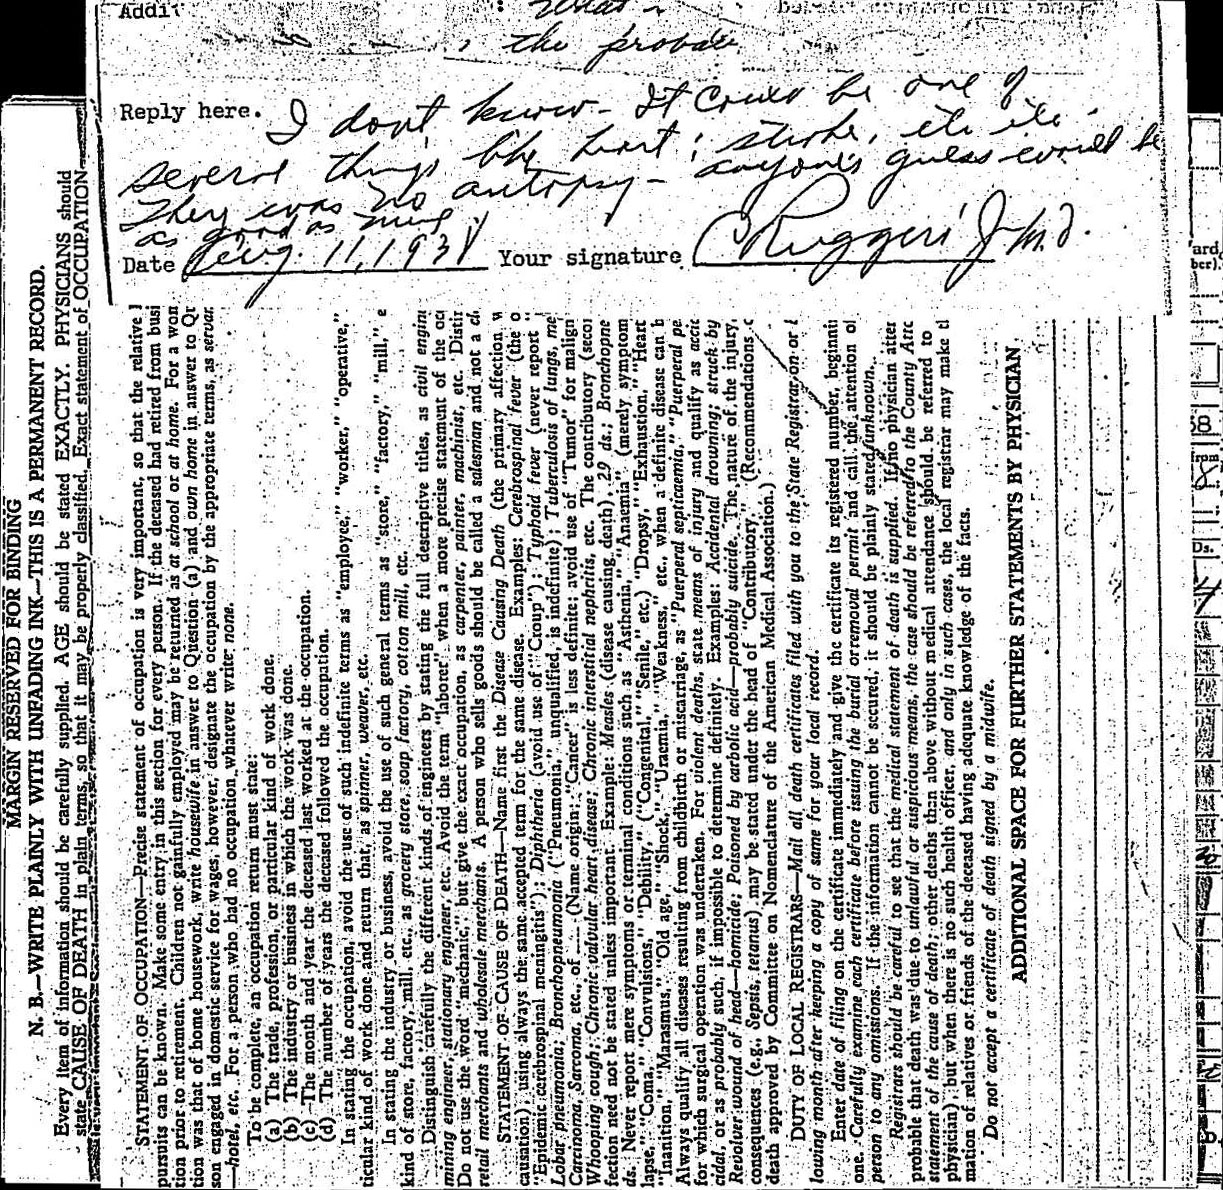 Addit
What
the probable
Reply here. I don't know - It could be one of
several things like heart; stroke, etc etc -
There was no autopsy - anyone's guess would be
as good as mine
Date Aug. 11, 1938 Your signature C Ruggeri Jr M.D.
MARGIN RESERVED FOR BINDING
N. B.—WRITE PLAINLY WITH UNFADING INK—THIS IS A PERMANENT RECORD.
Every item of information should be carefully supplied. AGE should be stated EXACTLY. PHYSICIANS should
state CAUSE OF DEATH in plain terms, so that it may be properly classified. Exact statement of OCCUPATION
STATEMENT OF OCCUPATION—Precise statement of occupation is very important, so that the relative
pursuits can be known. Make some entry in this section for every person. If the deceased had retired from busi
tion prior to retirement. Children not gainfully employed may be returned as at school or at home. For a won
tion was that of home housework, write housewife in answer to Question (a) and own home in answer to Qr
son engaged in domestic service for wages, however, designate the occupation by the appropriate terms, as servar
hotel, etc. For a person who had no occupation whatever write none.
To be complete, an occupation return must state:
(a) The trade, profession, or particular kind of work done.
(b) The industry or business in which the work was done.
(c) The month and year the deceased last worked at the occupation.
(d) The number of years the deceased followed the occupation.
In stating the occupation, avoid the use of such indefinite terms as "employee," "worker," "operative,"
ticular kind of work done and return that, as spinner, weaver, etc.
In stating the industry or business, avoid the use of such general terms as "store," "factory," "mill," e
kind of store, factory, mill, etc., as grocery store, soap factory, cotton mill, etc.
Distinguish carefully the different kinds of engineers by stating the full descriptive titles, as civil engine
mining engineer, stationary engineer, etc. Avoid the term "laborer" when a more precise statement of the occ
Do not use the word "mechanic," but give the exact occupation, as carpenter, painter, machinist, etc. Distir
retail merchants and wholesale merchants. A person who sells goods should be called a salesman and not a cl
STATEMENT OF CAUSE OF DEATH—Name first the Disease Causing Death (the primary affection w
causation), using always the same accepted term for the same disease. Examples: Cerebrospinal fever (the o
"Epidemic cerebrospinal meningitis"); Diphtheria (avoid use of "Croup"); Typhoid fever (never report "
Lobar pneumonia; Bronchopneumonia ("Pneumonia," unqualified, is indefinite); Tuberculosis of lungs, me
Carcinoma, Sarcoma, etc., of ....(Name origin; "Cancer" is less definite; avoid use of "Tumor" for malign
Whooping cough; Chronic valvular heart disease; Chronic interstitial nephritis, etc. The contributory (secor
fection need not be stated unless important. Example: Measles (disease causing death), 29 ds.; Bronchopne
ds. Never report mere symptoms or terminal conditions such as "Asthenia," "Anaemia" (merely symptom
lapse," "Coma," "Convulsions," "Debility," ("Congenital," "Senile," etc.) "Dropsy," "Exhaustion," "Heart
"Inanition," "Marasmus," "Old age," "Shock," "Uraemia," "Weakness," etc., when a definite disease can b
Always qualify all diseases resulting from childbirth or miscarriage, as "Puerperal septicaemia," "Puerperal pe
for which surgical operation was undertaken. For violent deaths, state means of injury and qualify as accic
cidal, or as probably such, if impossible to determine definitely. Examples: Accidental drowning; struck by
Revolver wound of head—homicide; Poisoned by carbolic acid—probably suicide. The nature of the injury,
consequences (e.g., Sepsis, tetanus) may be stated under the head of "Contributory." (Recommendations c
death approved by Committee on Nomenclature of the American Medical Association.)
DUTY OF LOCAL REGISTRARS—Mail all death certificates filed with you to the State Registrar on or
lowing month after keeping a copy of same for your local record.
Enter date of filing on the certificate immediately and give the certificate its registered number, beginni
one. Carefully examine each certificate before issuing the burial or removal permit and call the attention of
person to any omissions. If the information cannot be secured, it should be plainly stated unknown.
Registrars should be careful to see that the medical statement of death is supplied. If no physician after
probable that death was due to unlawful or suspicious means, the case should be referred to the County Atto
statement of the cause of death; other deaths than above without medical attendance should be referred to
physician), but when there is no such health officer, and only in such cases, the local registrar may make cl
mation of relatives or friends of the deceased having adequate knowledge of the facts.
Do not accept a certificate of death signed by a midwife.
ADDITIONAL SPACE FOR FURTHER STATEMENTS BY PHYSICIAN
ard
ber).
38
Ds.